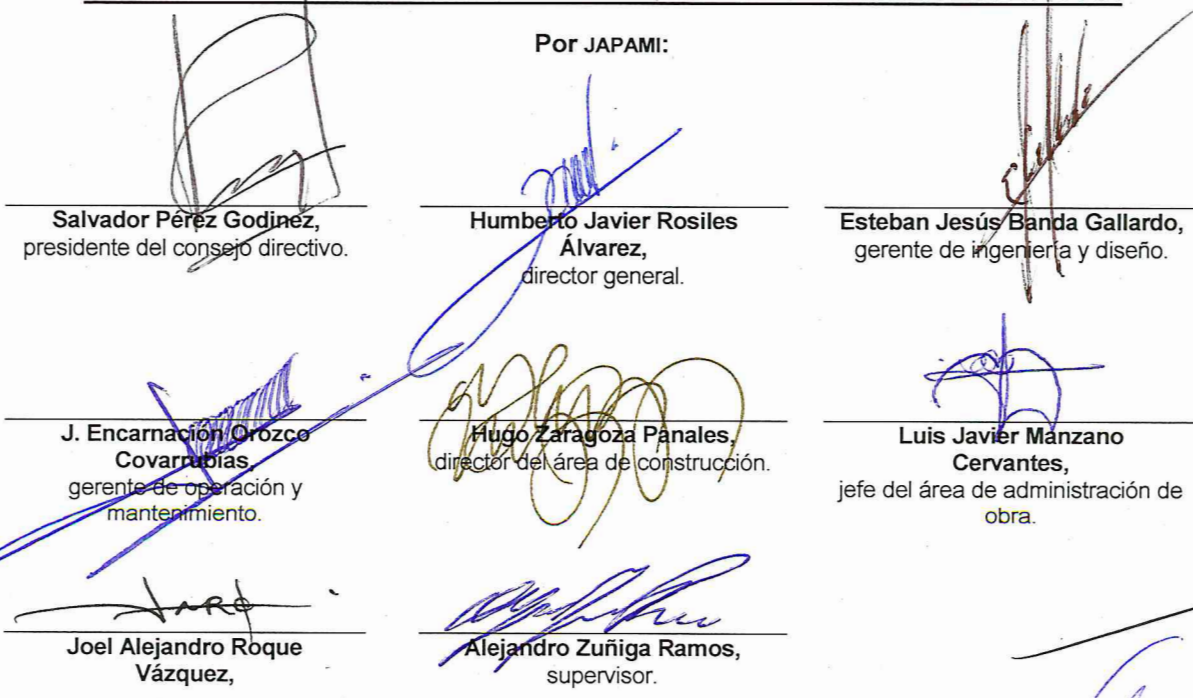 Por JAPAMI:
Salvador Pérez Godinez,
presidente del consejo directivo.
Humberto Javier Rosiles
Álvarez,
director general.
Esteban Jesús Banda Gallardo,
gerente de ingeniería y diseño.
J. Encarnación Orozco
Covarrubias,
gerente de operación y
mantenimiento.
Hugo Zaragoza Panales,
director del área de construcción.
Luis Javier Manzano
Cervantes,
jefe del área de administración de
obra.
Joel Alejandro Roque
Vázquez,
Alejandro Zuñiga Ramos,
supervisor.